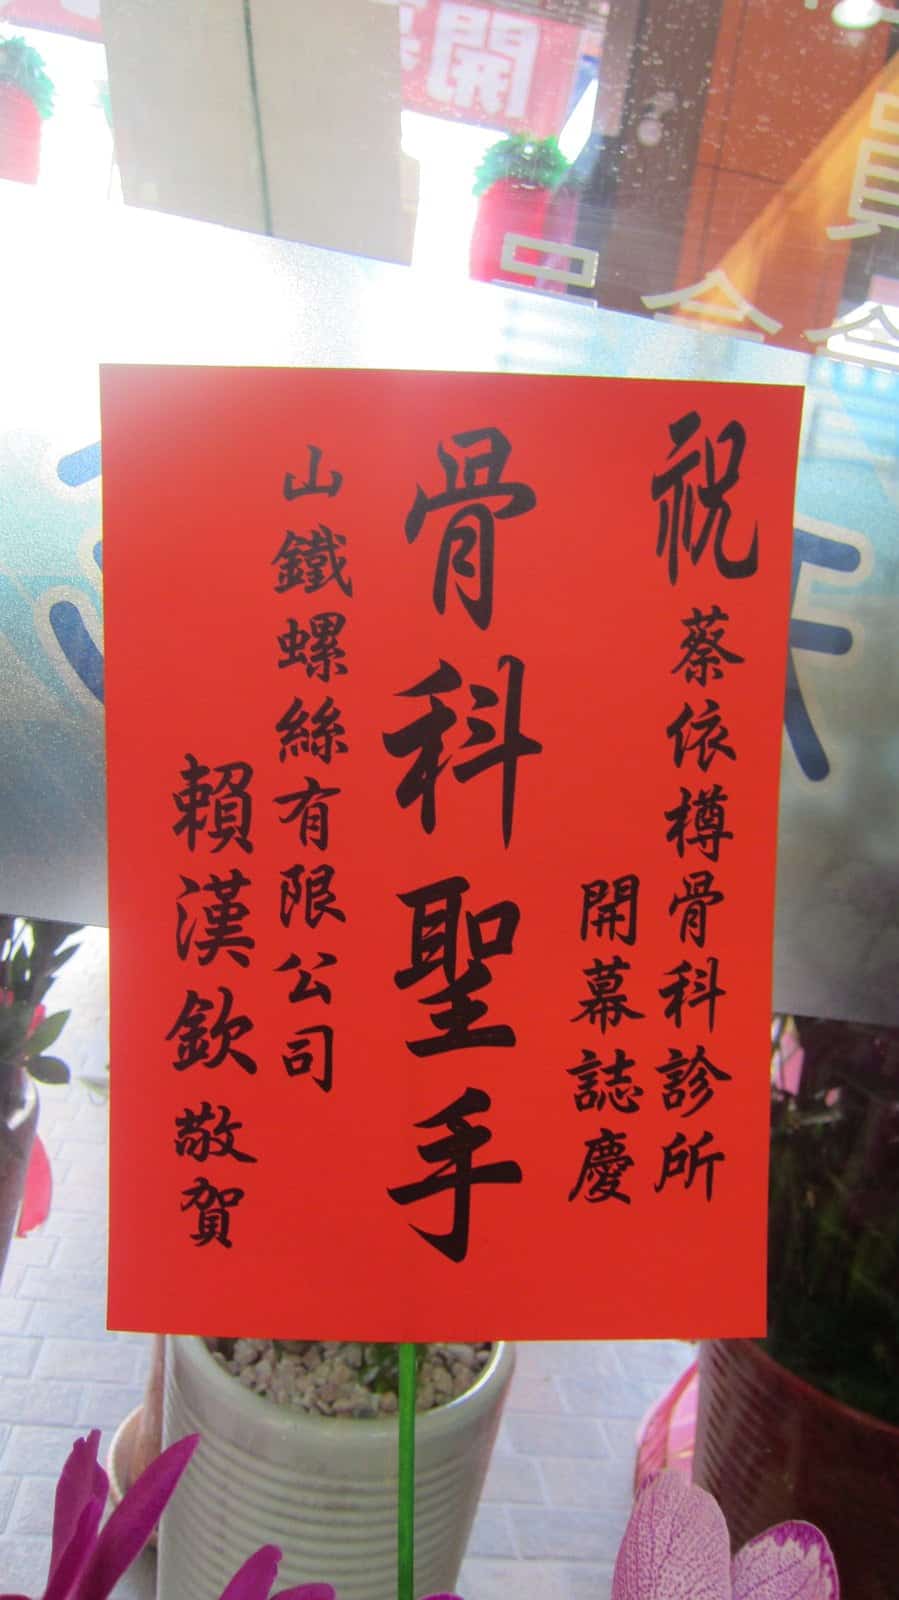 祝蔡依樽骨科診所
開幕誌慶
骨科聖手
山鐵螺絲有限公司
賴漢欽敬賀
開
員